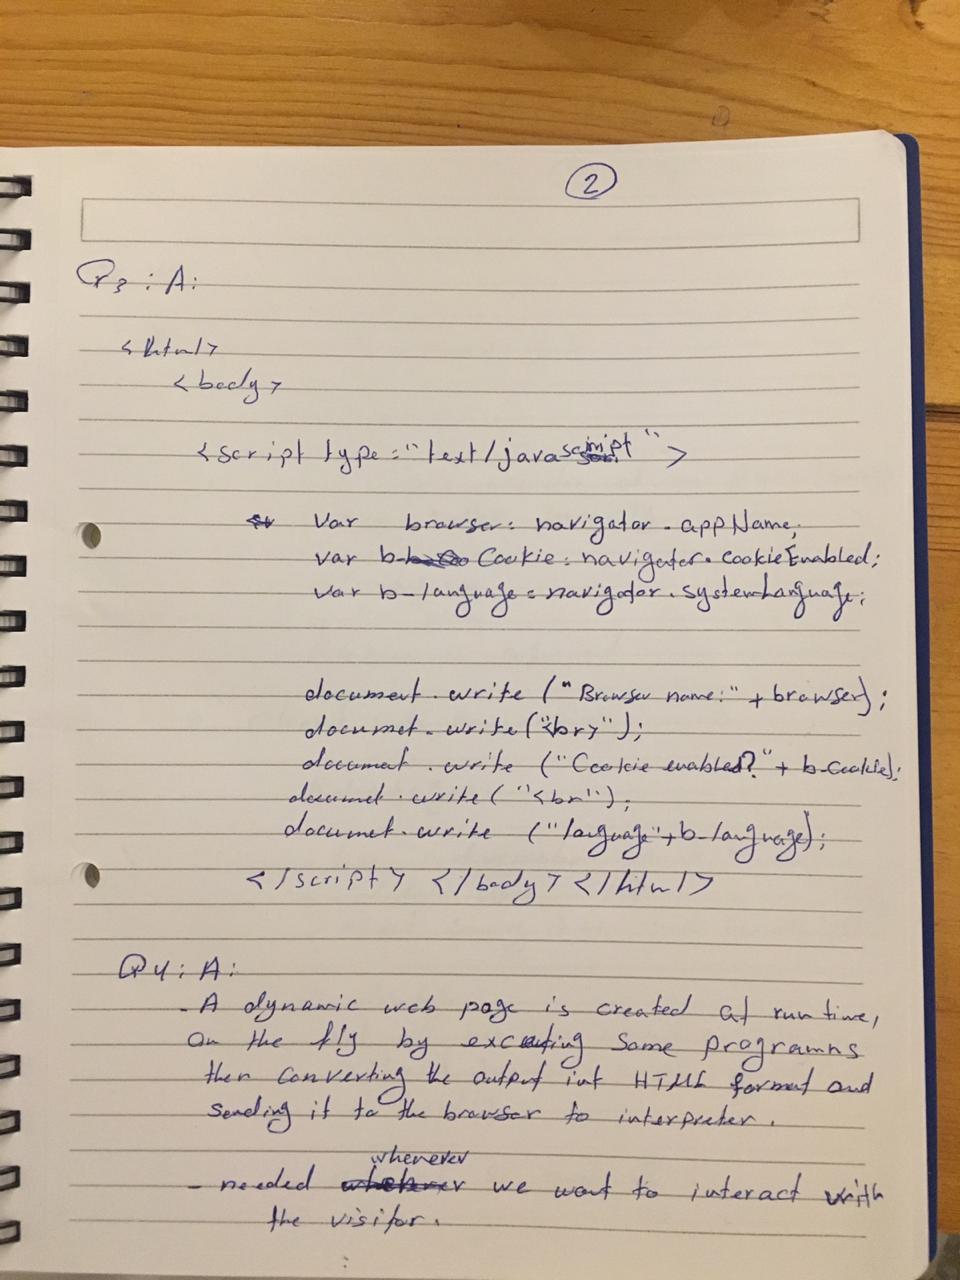 2
Q3 : A :
<html>
<body>
<script type="text/javascript">
var browser= navigator.appName;
var b-Cookie= navigator.cookieEnabled;
var b-language= navigator.systemLanguage;
document.write ("Browser name:" + browser);
documet.write("<br>");
document.write ("Cookie enabled?" + b-Cookie);
documet.write("<br");
documet.write ("language"+b-language);
</script> </body> </html>
Q4 : A :
- A dynamic web page is created at run time,
on the fly by excuting some programns
then converting the output int HTML format and
sending it to the browser to interpreter.
- needed whenever we want to interact with
the visitor.